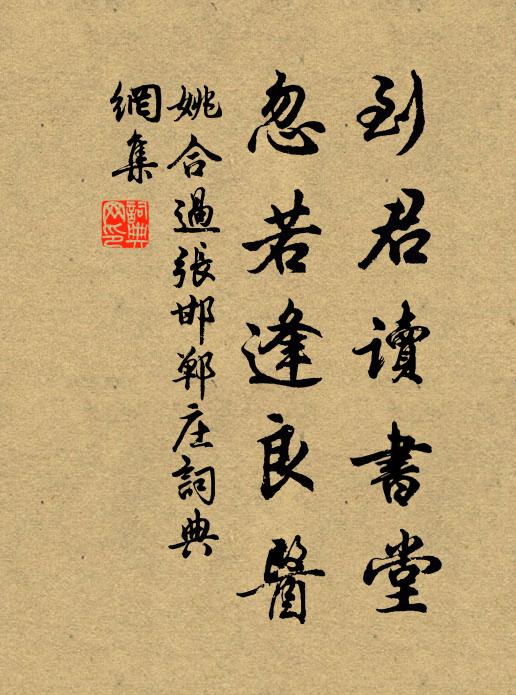 到君读書堂
忽若逢良醫
姚合過張邯鄲庄詞典
網集
詞典網印